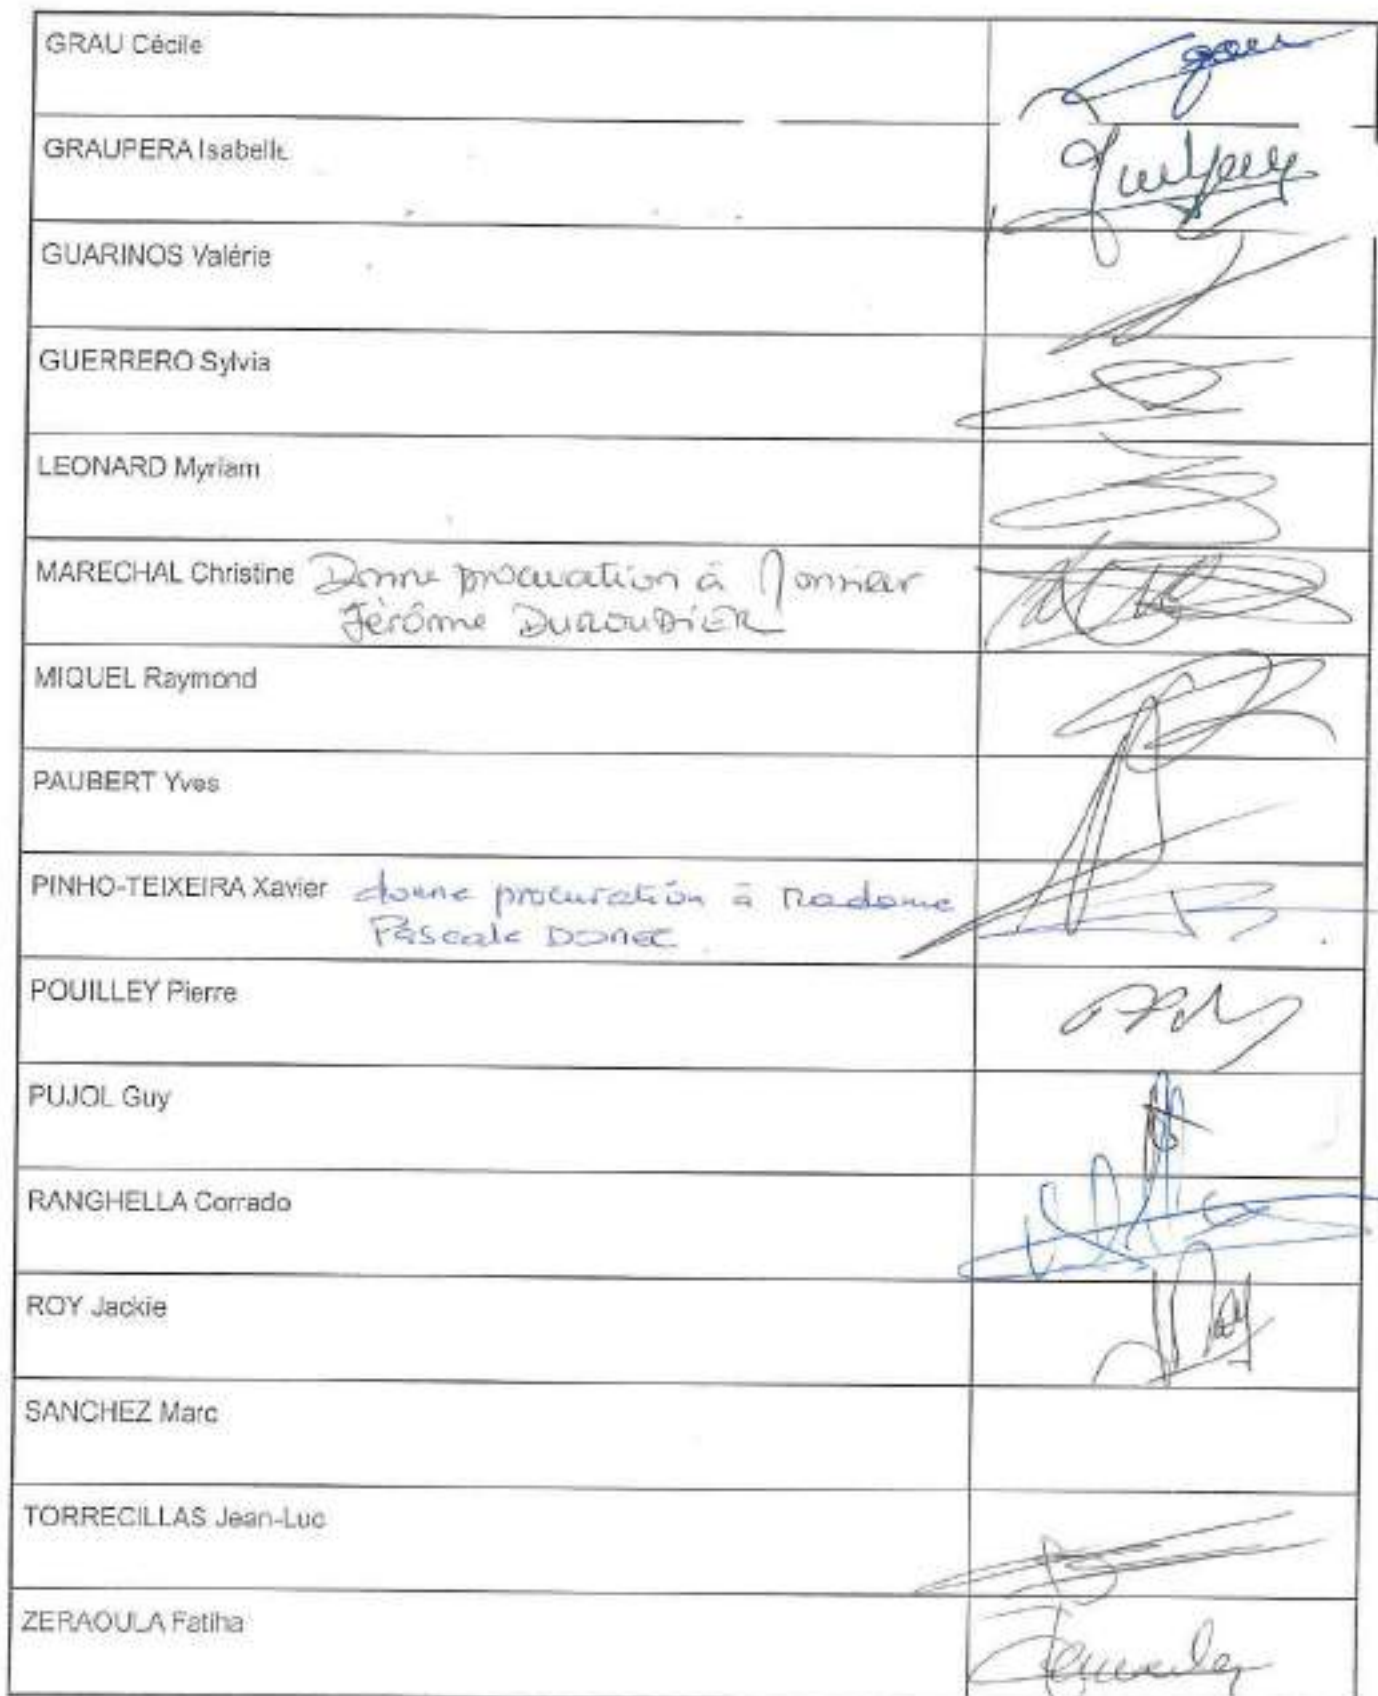 GRAU Cécile
GRAUPERA Isabelle
GUARINOS Valérie
GUERRERO Sylvia
LEONARD Myriam
MARECHAL Christine Donne procuration à Monsieur
Jérôme DUROUDIER
MIQUEL Raymond
PAUBERT Yves
PINHO-TEIXEIRA Xavier donne procuration à Madame
Pascale
POUILLEY Pierre
PUJOL Guy
RANGHELLA Corrado
ROY Jackie
SANCHEZ Marc
TORRECILLAS Jean-Luc
ZERAOULA Fatiha